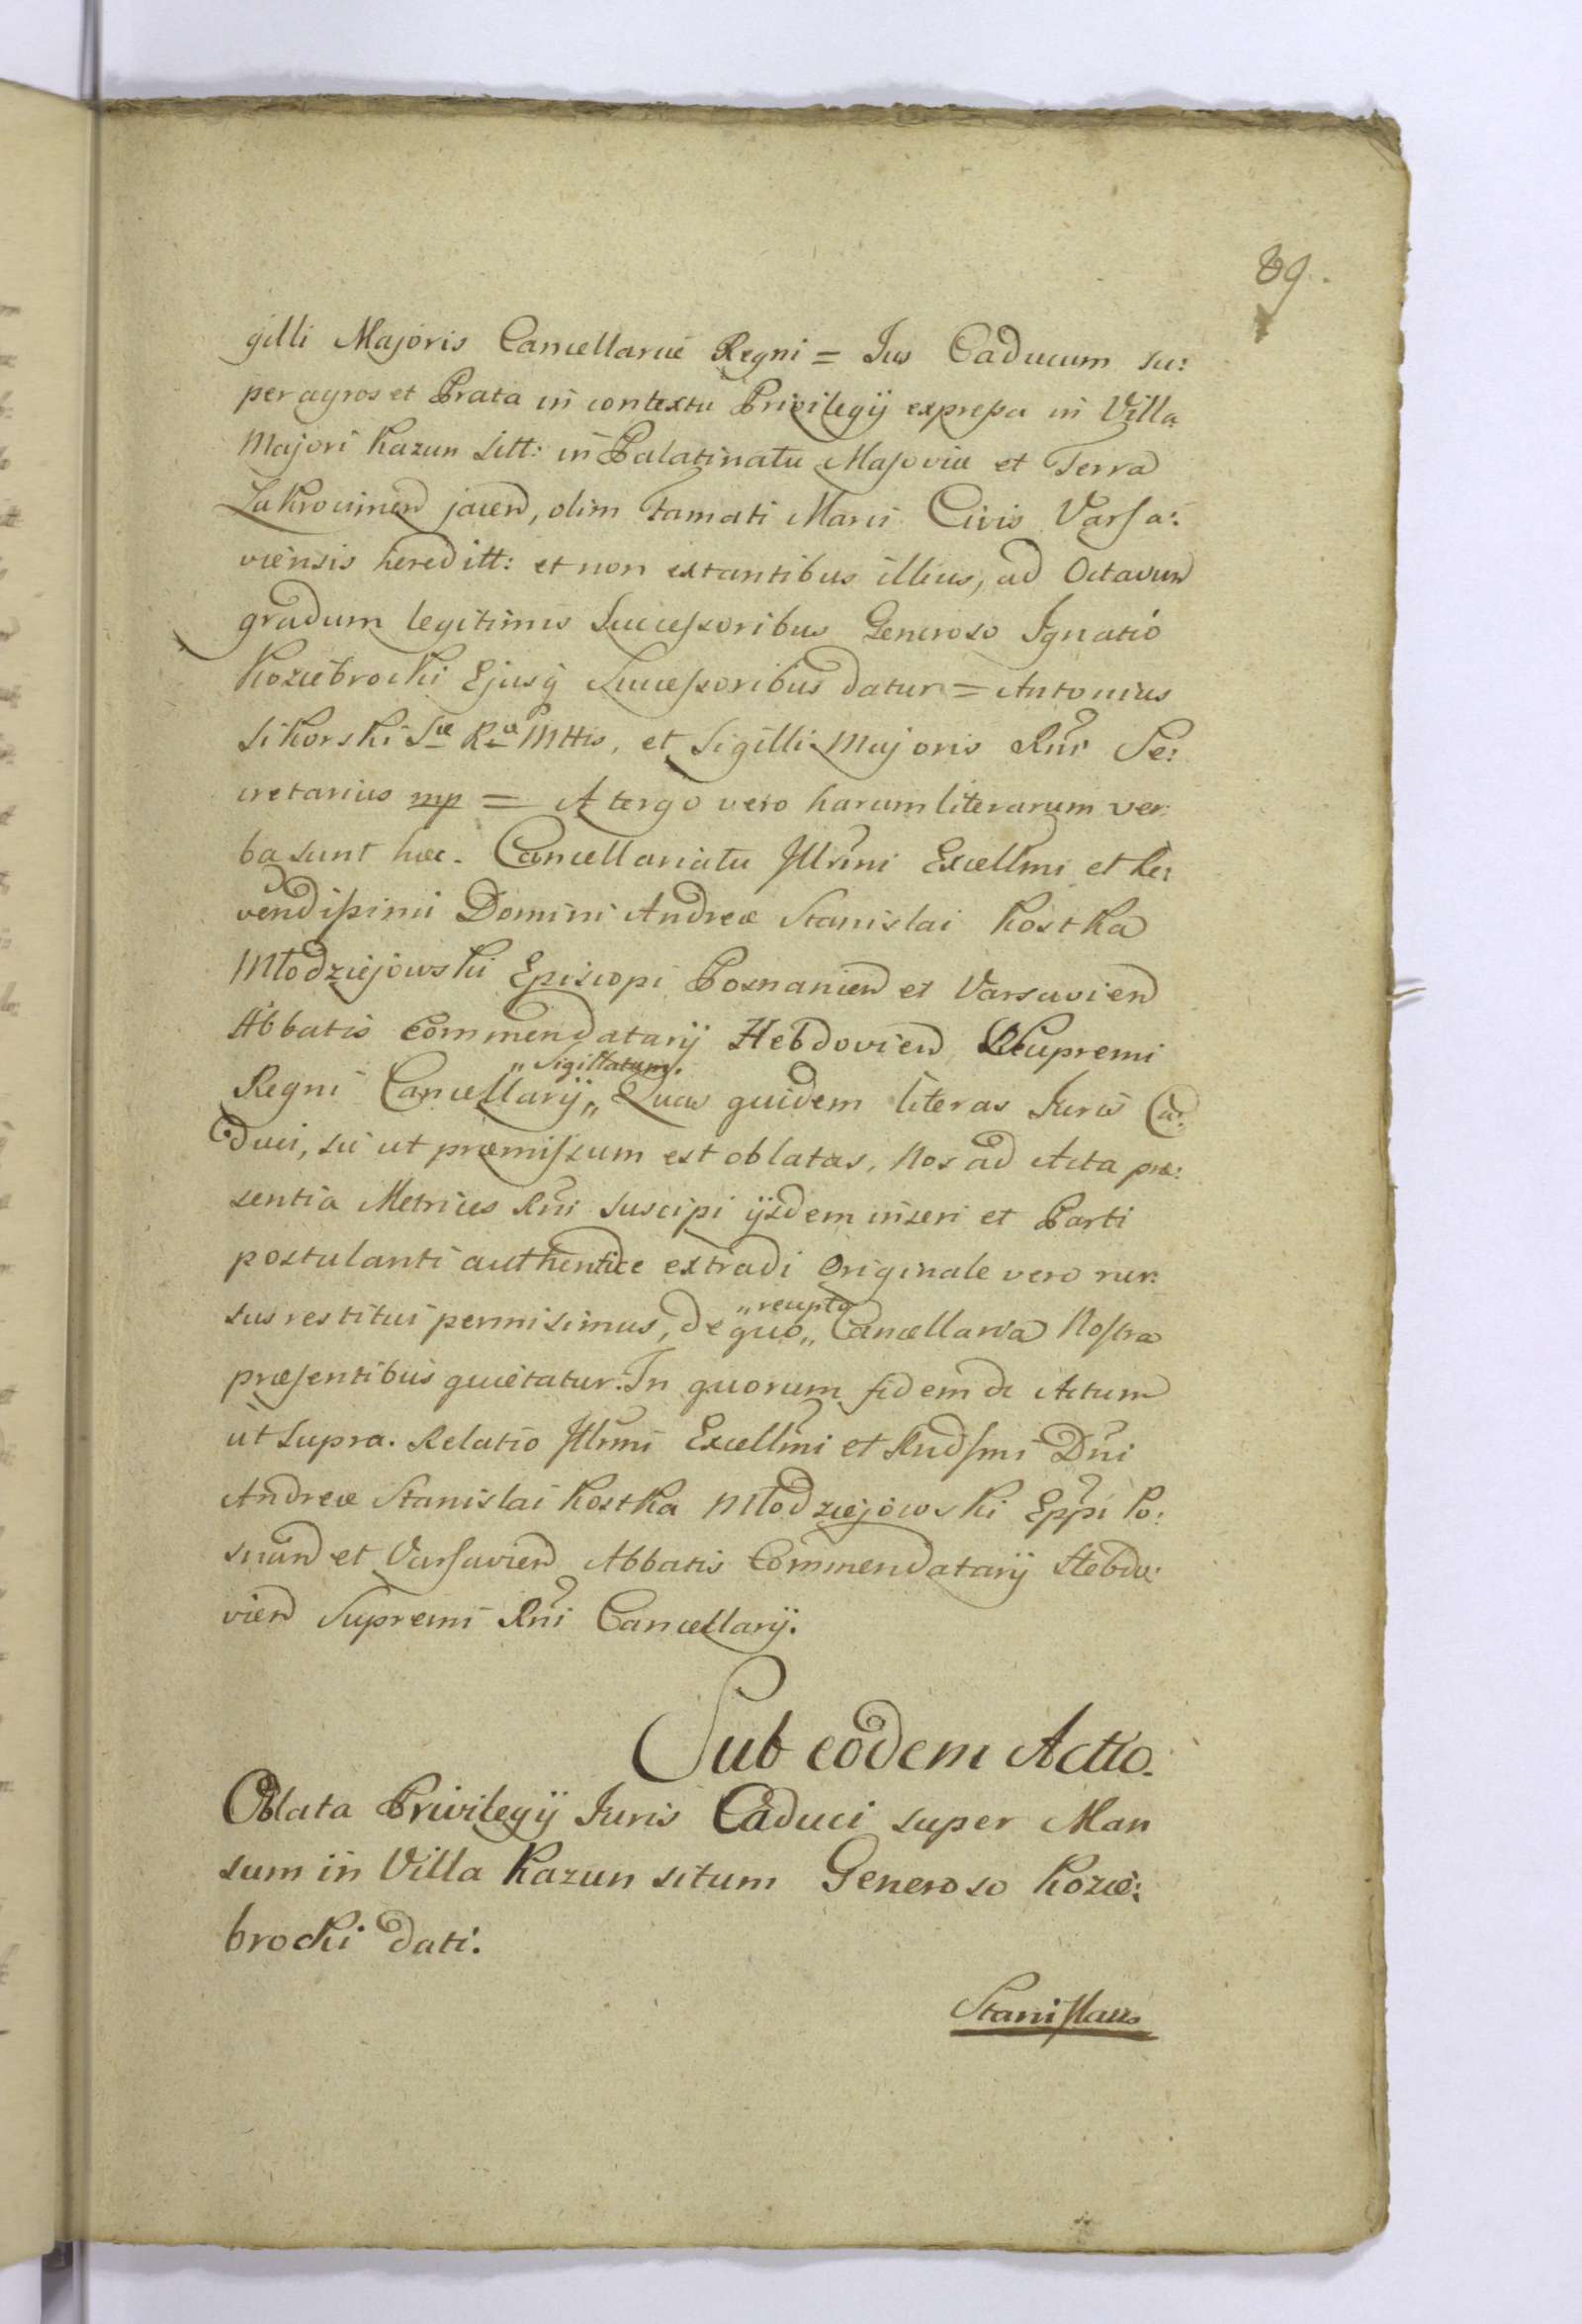 89.
gilli Majoris Cancellariæ Regni = Jus Caducum su:
per agros et Prata in contextu Privilegij expressa in Villa
Majori Kazun sitt: in Palatinatu Masoviæ et Terra
Zakrocimen jacen, olim Famati Marci Civis Varsa:
viensis hereditt: et non extantibus illius, ad Octavum
gradum legitimis Successoribus Generoso Ignatio
Koziebrocki Ejusq Successoribus datur = Antonius
Sikorski Sæ Ræ Mttis, et Sigilli Majoris Rni Se:
cretarius mp = A tergo vero harum literarum ver:
ba sunt hæc. Cancellariatu Jllrmi Excellmi et Re:
vendissimi Domini Andreæ Stanislai Kostka
Młodziejowski Episcopi Posnanien et Varsavien
Abbatis Commendatarij Hebdovien Supremi
„Sigillatum.
Regni Cancellarij„ Quas quidem literas Juris Ca:
duci, sic ut præmissum est oblatas, Nos ad Acta præ:
sentia Metrices Rni suscipi ijsdem inseri et Parti
postulanti authentice extradi Originale vero rur:
„recepto
sus restitui permisimus, de quo„ Cancellaria Nostra
præsentibus quietatur. In quorum fidem &c Actum
ut supra. Relatio Jllrmi Excellmi et Rndsmi Dni
Andreæ Stanislai Kostka Młodziejowski Eppi Po:
snan et Varsavien Abbatis Commendatarij Hebdo:
vien Supremi Rni Cancellarij.
Sub eodem Actio.
Oblata Privilegij Juris Caduci super Man
sum in Villa Kazun situm Generoso Kozie:
brocki dati.
Stanislaus